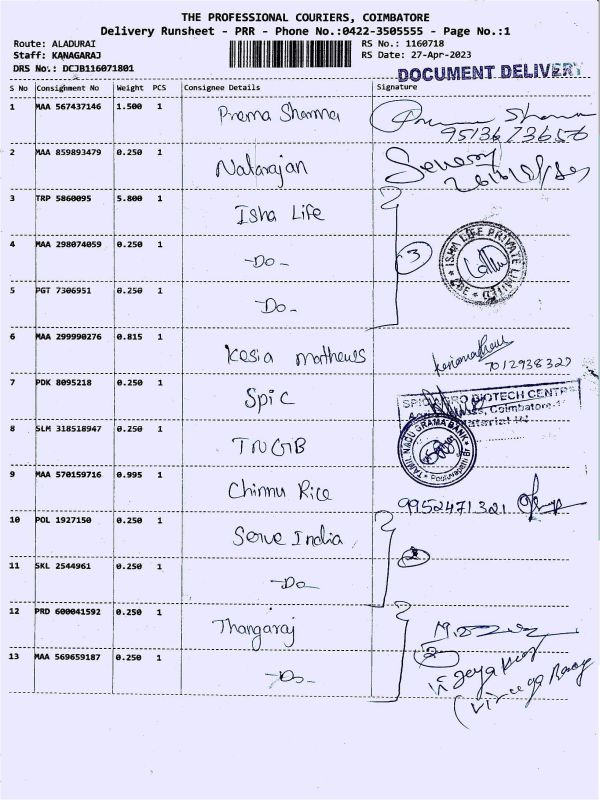 THE PROFESSIONAL COURIERS, COIMBATORE
Delivery Runsheet - PRR - Phone No.:0422-3505555 - Page No.:1
Route: ALADURAI
RS No.: 1160718
Staff: KANAGARAJ
RS Date: 27-Apr-2023
DRS No.: DCJB116071801
DOCUMENT DELIVERY
S No Consignment No Weight PCS Consignee Details Signature
1 MAA 567437146 1.500 1 Prema Sharma
9513673656
2 MAA 859893479 0.250 1 Natarajan
3 TRP 5860095 5.800 1 Isha Life
4 MAA 298074059 0.250 1 -Do- 3
ISHA LIFE PRIVATE LIMITED
5 PGT 7306951 0.250 1 -Do-
6 MAA 299990276 0.815 1 Kesia mathews
7012938327
7 PDK 8095218 0.250 1 Spic
SPIC AGRO BIOTECH CENTRE
Coimbatore
8 SLM 318518947 0.250 1 TNGB
TAMIL NADU GRAMA BANK
9 MAA 570159716 0.995 1 Chinnu Rice 9952471321
10 POL 1927150 0.250 1 Serve India
11 SKL 2544961 0.250 1 -Do- 2
12 PRD 600041592 0.250 1 Thangaraj
13 MAA 569659187 0.250 1 -Do- 2